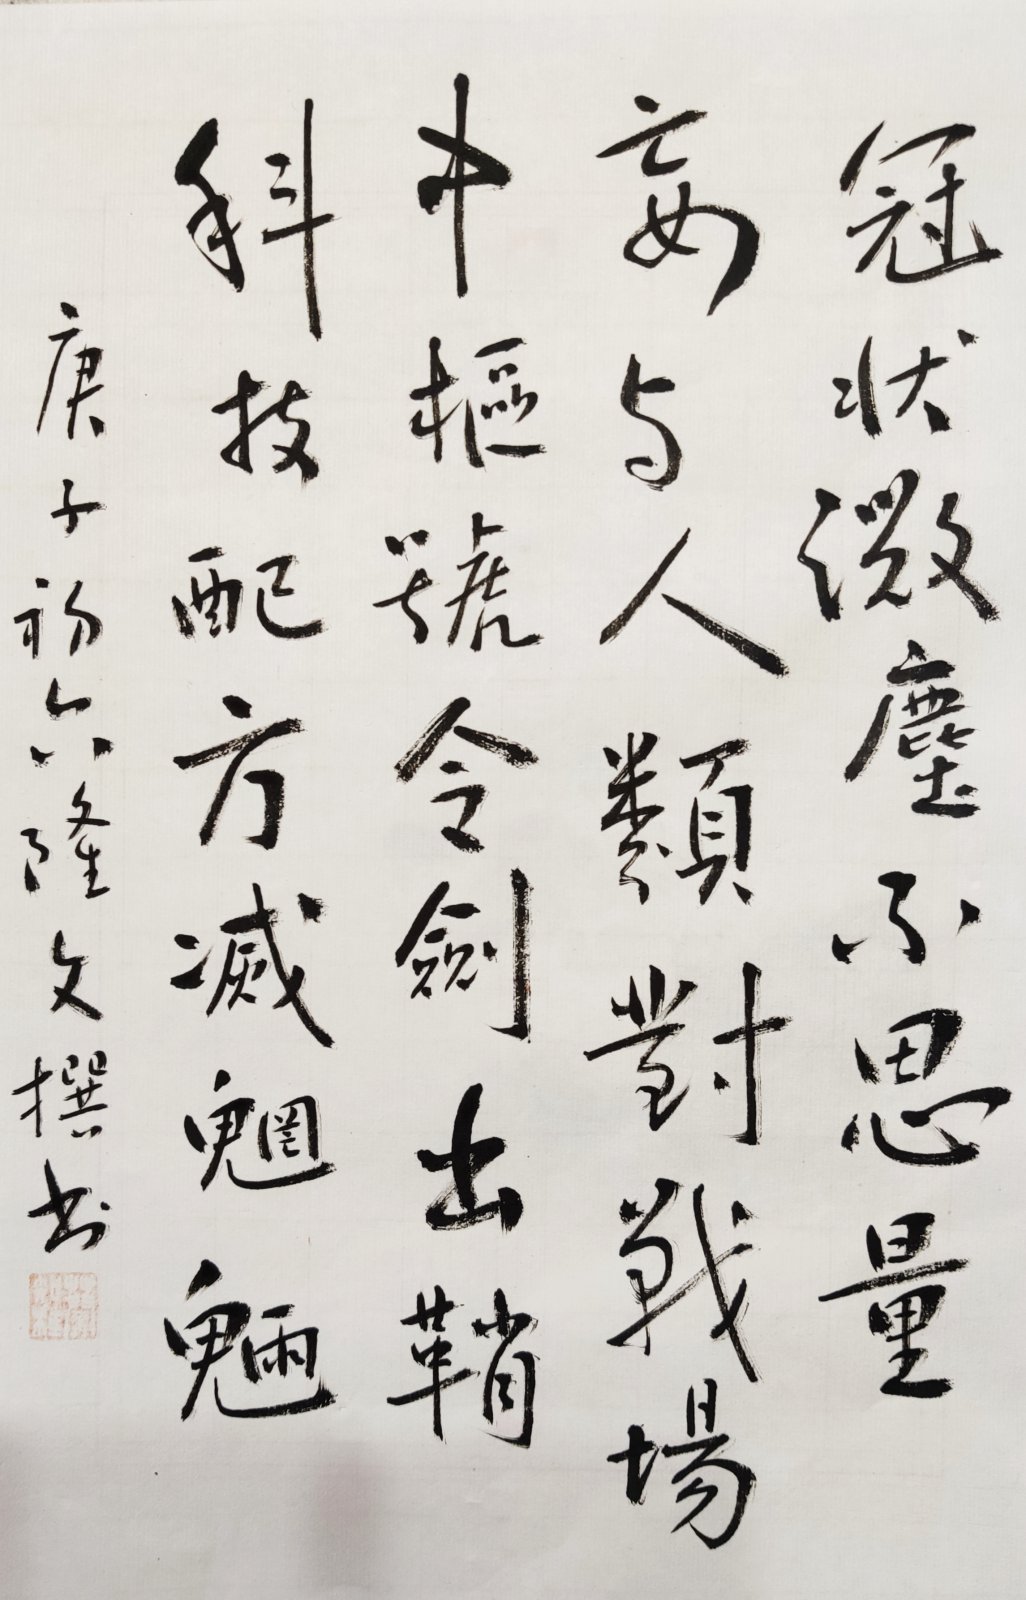 冠状微塵不思量
妄与人類對戰場
中樞號令劍出鞘
科技配方滅魍魎
庚子初六隆文撰书